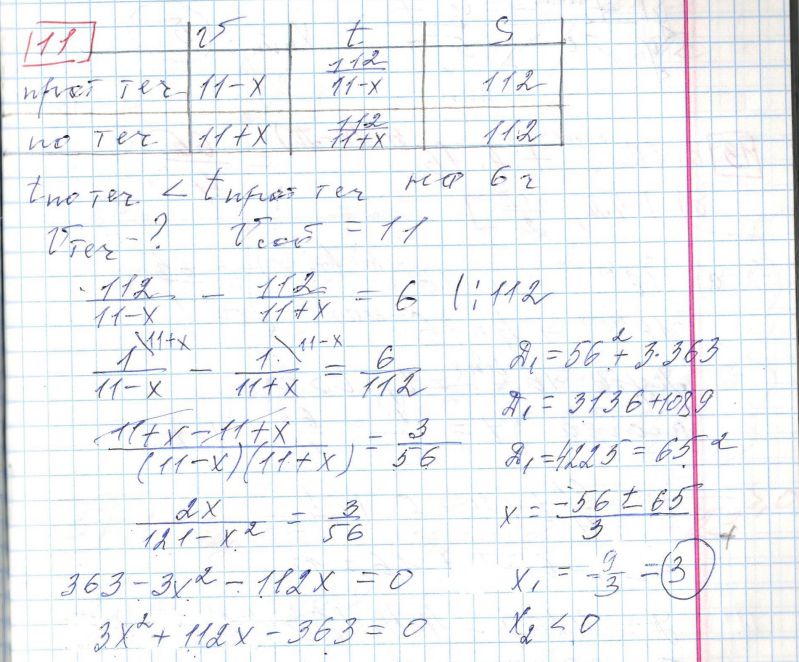 11
V t S
прот теч 11-x 112/(11-x) 112
по теч 11+x 112/(11+x) 112
t по теч < t прот теч на 6 ч
V теч - ? V соб = 11
112/(11-x) - 112/(11+x) = 6 |:112
1/(11-x) \11+x - 1/(11+x) \11-x = 6/112
(11+x-11+x)/((11-x)(11+x)) = 3/56
2x/(121-x²) = 3/56
363-3x²-112x=0
3x²+112x-363=0
Д₁=56²+3·363
Д₁=3136+1089
Д₁=4225=65²
x=(-56±65)/3
x₁=9/3=3 +
x₂<0